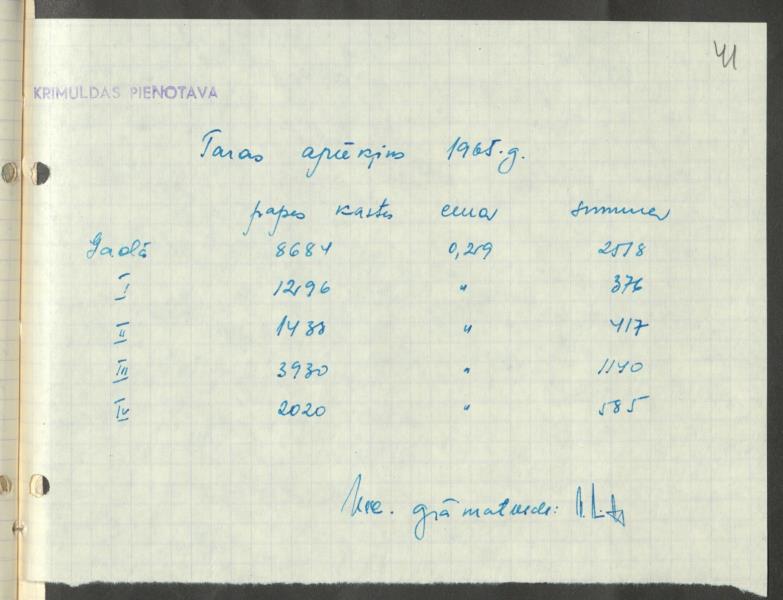 41
KRIMULDAS PIENOTAVA
Taras aprēķins 1965.g.
papes kastes cena summa
Gadā 8684 0,29 2518
I 1296 " 376
II 1438 " 417
III 3930 " 1140
IV 2020 " 585
grāmatvede: